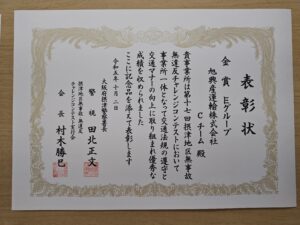 表彰状
金賞 Eグループ
旭興産運輸株式会社
Cチーム 殿
貴事業所は第十七回摂津地区無事故
無違反チャレンジコンテストにおいて
事業所一体となって交通法規の遵守と
交通マナーの向上に取り組まれ優秀な
成績を収められました
ここに記念品を添えて表彰します
令和五年十月二日
大阪府摂津警察署長
警視 田北正文
摂津地区無事故・無違反
チャレンジコンテスト実行委員会
会長 村木勝也